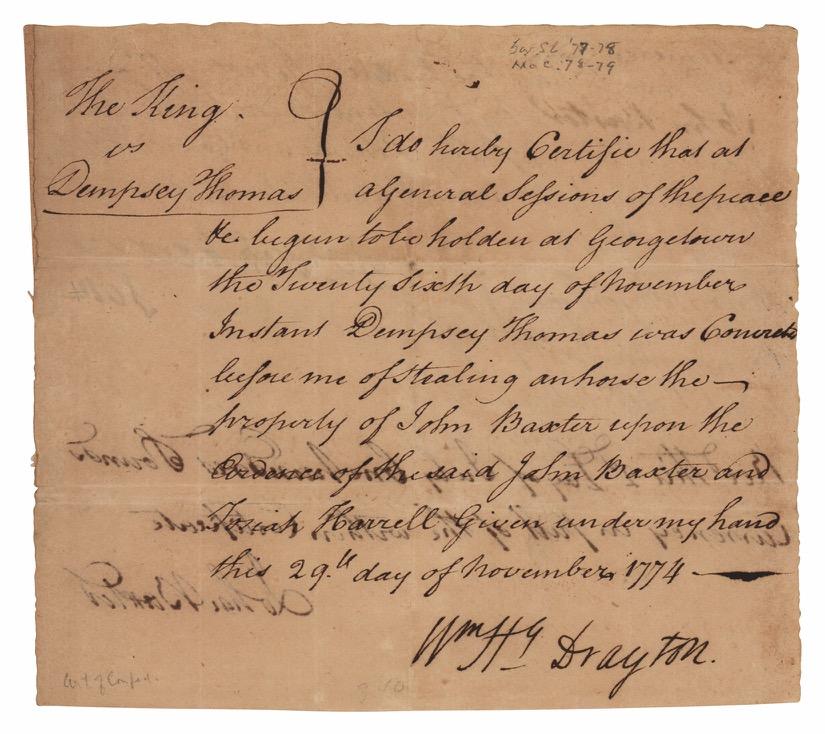 The King.
vs
Dempsey Thomas
I do hereby Certifie that at
a General Sessions of the peace
&c. begun to be holden at Georgetown
the Twenty Sixth day of November
Instant Dempsey Thomas was Convicted
before me of stealing an horse the
property of John Baxter upon the
Evidence of the said John Baxter and
Josiah Harrell Given under my hand
this 29.th day of November 1774
Wm Hy Drayton.
'77-78
78-79